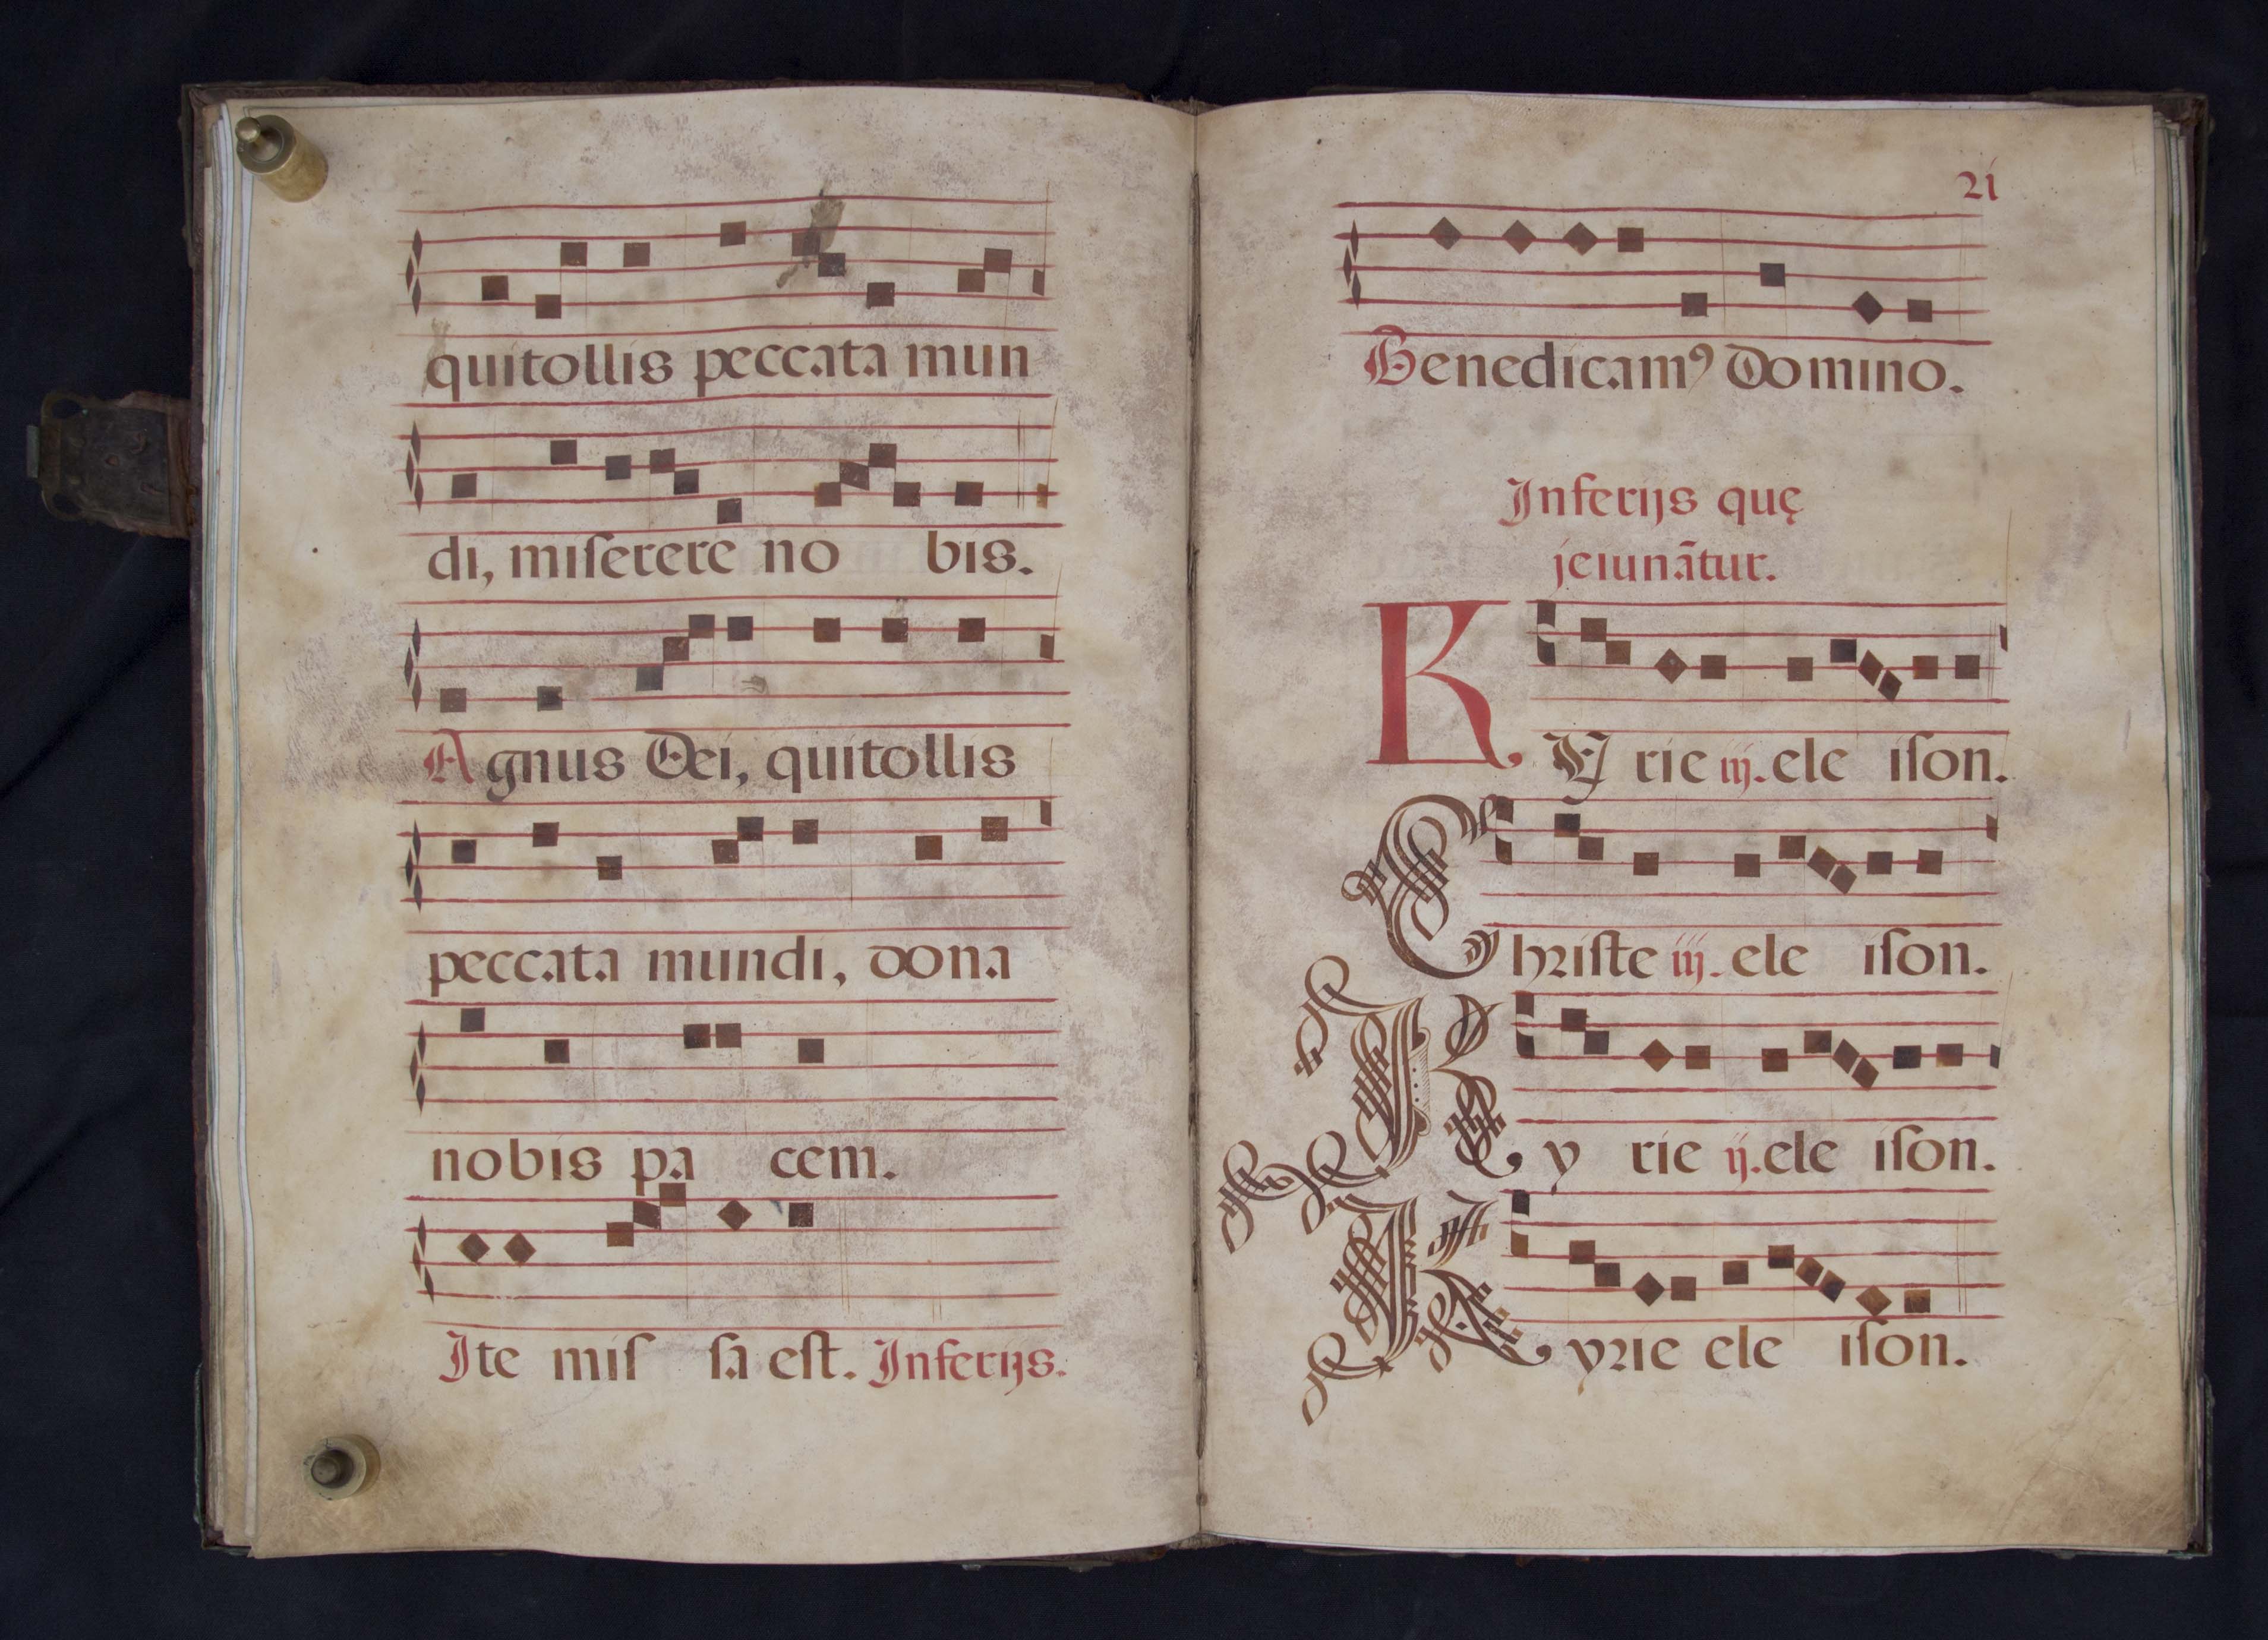 quitollis peccata mun
di, miſerere no bis.
Agnus Dei, quitollis
peccata mundi, dona
nobis pa cem.
Ite miſ ſa eſt. Inferijs.
21
Benedicamꝰ Domino.
Inferijs quę
jeiunātur.
KY rie iij. ele iſon.
Chriſte iij. ele iſon.
Ky rie ij. ele iſon.
Kyrie ele iſon.